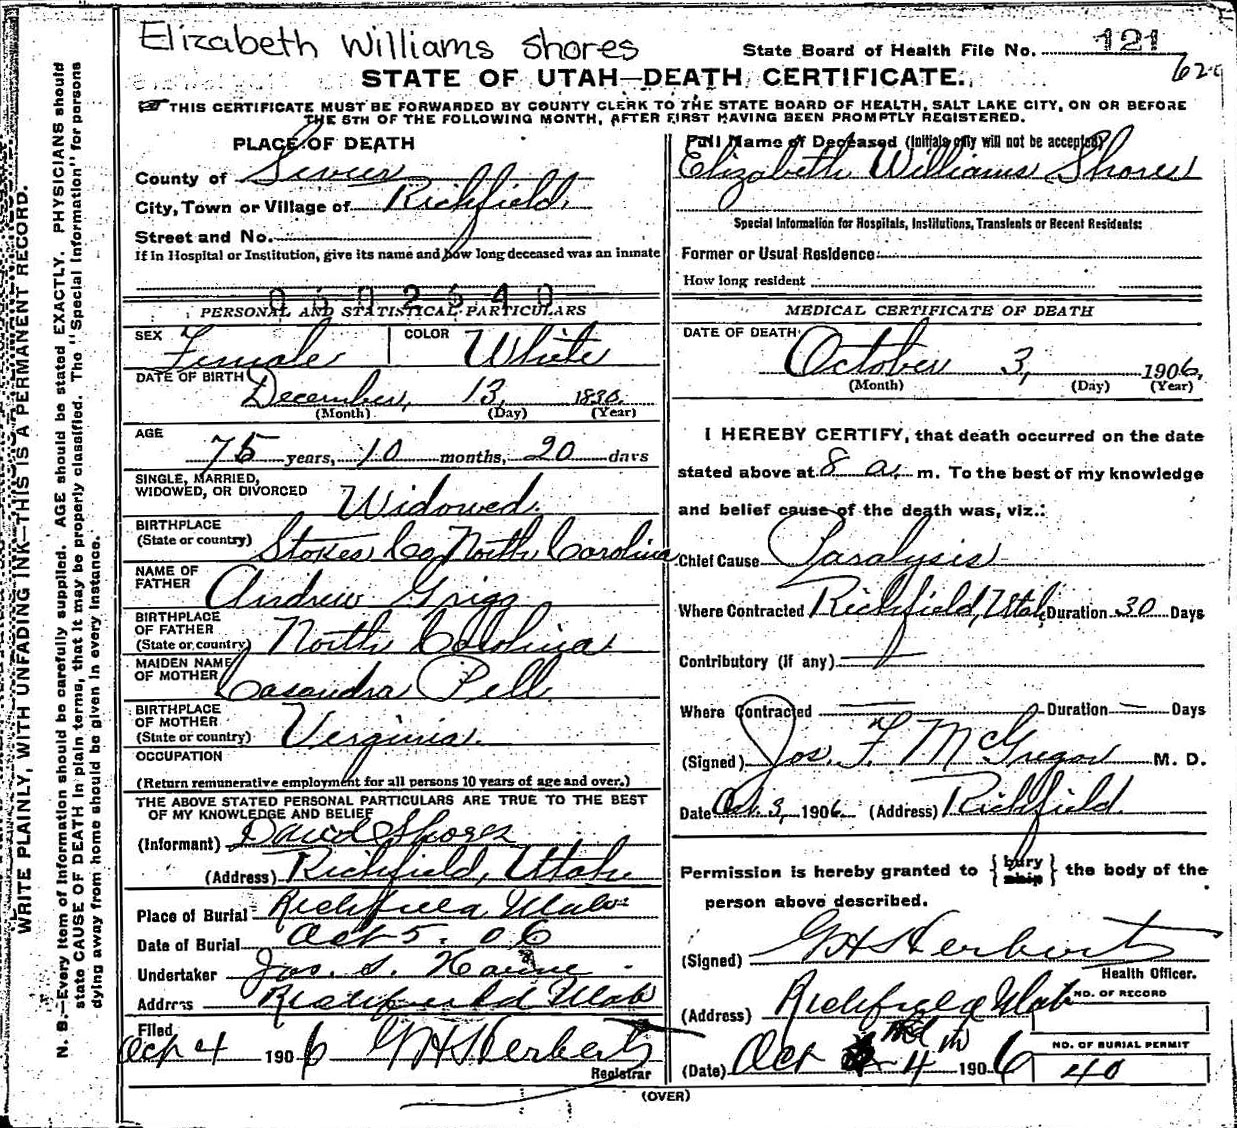 Elizabeth Williams Shores
State Board of Health File No. 121
STATE OF UTAH—DEATH CERTIFICATE.
THIS CERTIFICATE MUST BE FORWARDED BY COUNTY CLERK TO THE STATE BOARD OF HEALTH, SALT LAKE CITY, ON OR BEFORE
THE 5TH OF THE FOLLOWING MONTH, AFTER FIRST HAVING BEEN PROMPTLY REGISTERED.
WRITE PLAINLY, WITH UNFADING INK—THIS IS A PERMANENT RECORD.
N. B.—Every item of information should be carefully supplied. AGE should be stated EXACTLY. PHYSICIANS should
state CAUSE OF DEATH in plain terms, that it may be properly classified. The "Special Information" for persons
dying away from home should be given in every instance.
PLACE OF DEATH
County of Sevier
City, Town or Village of Richfield
Street and No.
If in Hospital or Institution, give its name and how long deceased was an inmate
0602640
PERSONAL AND STATISTICAL PARTICULARS
SEX Female COLOR White
DATE OF BIRTH December, 13, 1830.
(Month) (Day) (Year)
AGE
75 years, 10 months, 20 days
SINGLE, MARRIED,
WIDOWED, OR DIVORCED Widowed.
BIRTHPLACE
(State or country) Stokes Co, North Carolina
NAME OF
FATHER Andrew Grigg
BIRTHPLACE
OF FATHER
(State or country) North Carolina
MAIDEN NAME
OF MOTHER Casandra Pell
BIRTHPLACE
OF MOTHER
(State or country) Virginia.
OCCUPATION
(Return remunerative employment for all persons 10 years of age and over.)
THE ABOVE STATED PERSONAL PARTICULARS ARE TRUE TO THE BEST
OF MY KNOWLEDGE AND BELIEF
(Informant) David Shores
(Address) Richfield, Utah
Place of Burial Richfield Utah
Date of Burial Oct 5. 06
Undertaker Jos. S.
Address Richfield Utah
Filed
Oct 4 1906 G H S Herbert
Registrar
Full Name of Deceased (Initials only will not be accepted)
Elizabeth Williams Shores
Special Information for Hospitals, Institutions, Transients or Recent Residents:
Former or Usual Residence:
How long resident
MEDICAL CERTIFICATE OF DEATH
DATE OF DEATH
October 3, 1906,
(Month) (Day) (Year)
I HEREBY CERTIFY, that death occurred on the date
stated above at 8 a. m. To the best of my knowledge
and belief cause of the death was, viz.:
Chief Cause Paralysis
Where Contracted Richfield, Utah Duration 30 Days
Contributory (if any)
Where Contracted Duration — Days
(Signed) Jos. F. McGregor M. D.
Date Oct 3, 1906. (Address) Richfield
Permission is hereby granted to { bury ship } the body of the
person above described.
(Signed) G H S Herbert
Health Officer.
(Address) Richfield Utah
NO. OF RECORD
(Date) Oct 4 th 1906
NO. OF BURIAL PERMIT
40
(OVER)